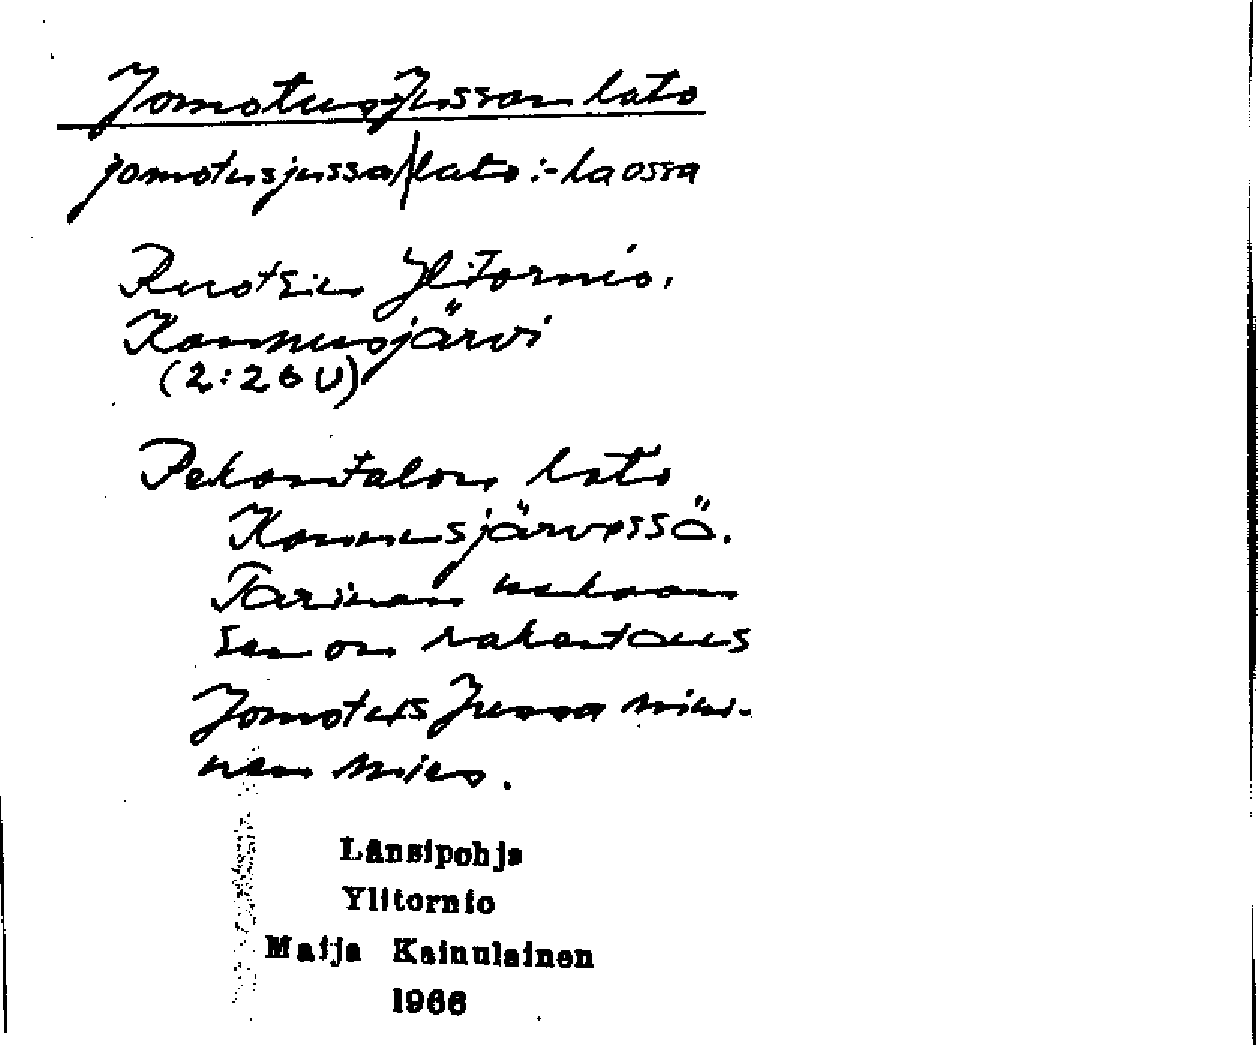 Jomotus-Jussan lato
jomotusjussa|lato :- laossa
Ruotsin Ylitornio.
Kannusjärvi
(2:26 U)
Pekantalon lato
Kannusjärvessä.
Tarinan mukaan
sen on rakentanus
Jomotus Jussa nimi-
nen mies.
Länsipohja
Ylitornio
Maija Kainulainen
1966